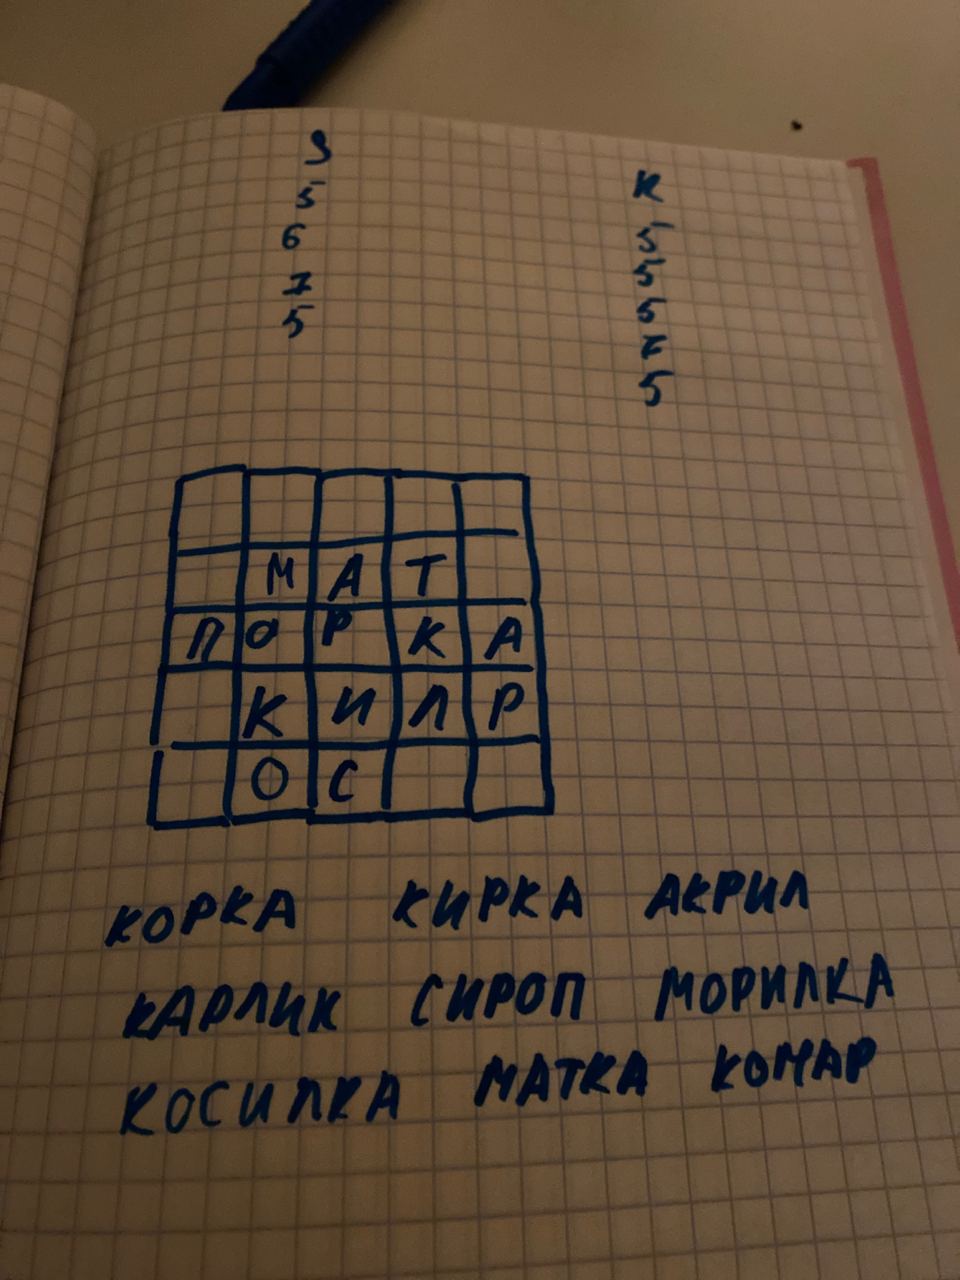 Э
5
6
7
5
К
5
5
5
7
5
М А Т
П О Р К А
К И Л Р
О С
КОРКА КИРКА АКРИЛ
КАРЛИК СИРОП МОРИЛКА
КОСИЛКА МАТКА КОМАР